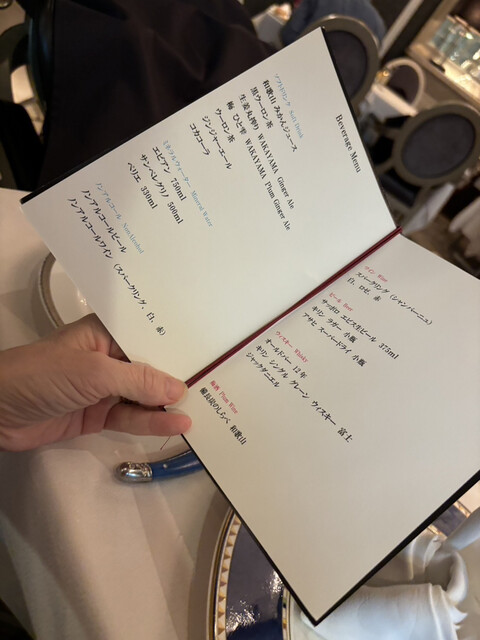 Beverage Menu
ソフトドリンク Soft Drink
和歌山 みかんジュース
黒ウーロン茶
生姜丸搾り WAKAYAMA Ginger Ale
梅 ひと雫 WAKAYAMA Plum Ginger Ale
ウーロン茶
ジンジャーエール
コカコーラ
ミネラルウォーター Mineral Water
エビアン 750ml
サンペレグリノ 500ml
ペリエ 330ml
ノンアルコール Non Alcohol
ノンアルコールビール
ノンアルコールワイン (スパークリング、白、赤)
ワイン Wine
スパークリング (シャンパーニュ)
白、ロゼ、赤
ビール Beer
サッポロ エビス生ビール 375ml
キリン ラガー 小瓶
アサヒ スーパードライ 小瓶
ウィスキー Whisky
オールドパー 12年
キリン シングル グレーン ウィスキー 富士
ジャックダニエル
梅酒 Plum Wine
備長炭のしらべ 和歌山